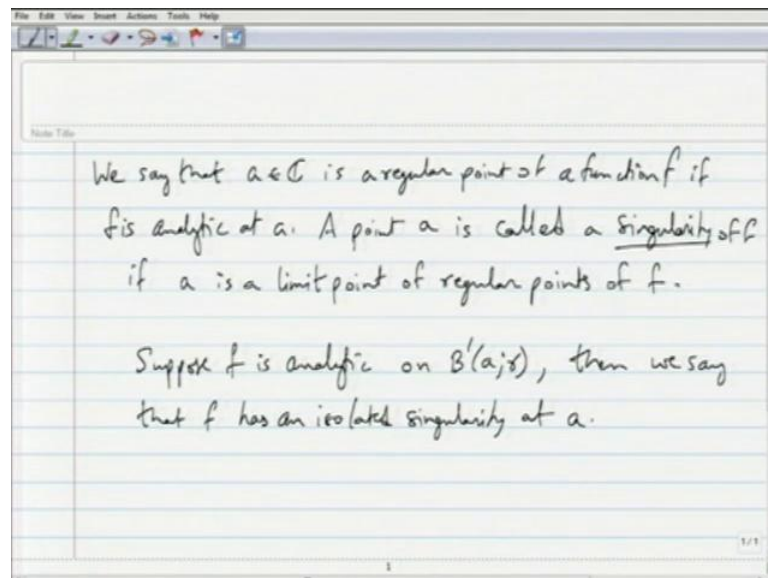 File Edit View Insert Actions Tools Help
Note Title
We say that a ∈ ℂ is a regular point of a function f if
f is analytic at a. A point a is called a singularity of f
if a is a limit point of regular points of f.
Suppose f is analytic on B'(a;r), then we say
that f has an isolated singularity at a.
1/1
1